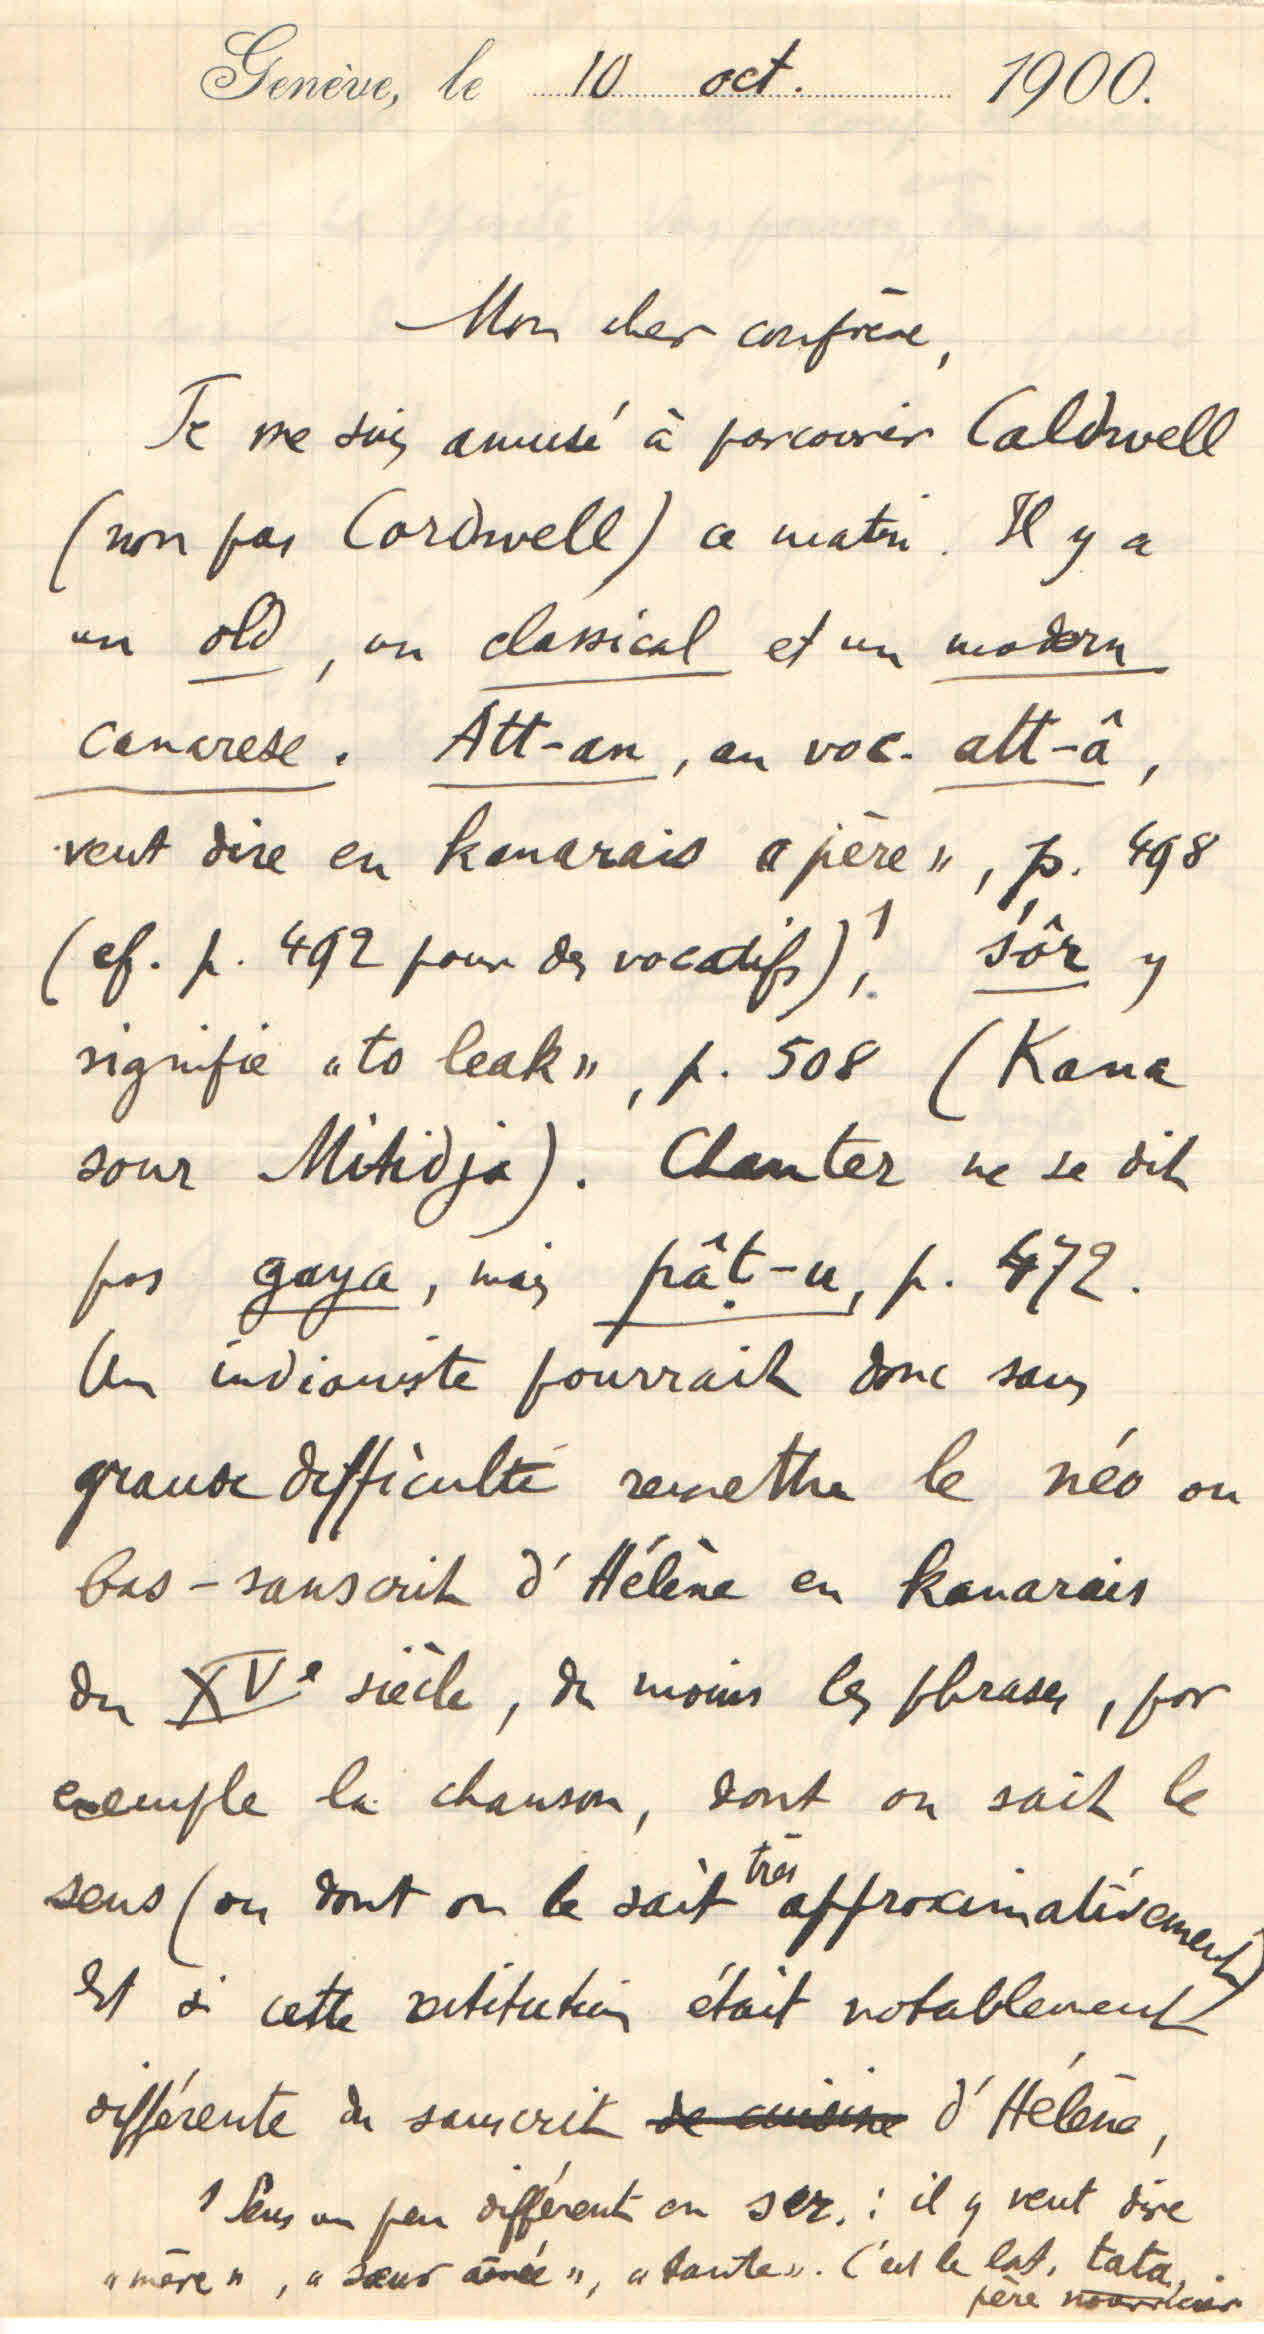 Genève, le 10 oct. 1900.
Mon cher confrère,
Je me suis amusé à parcourir Caldwell
(non pas Cordwell) ce matin. Il y a
un old, un classical et un modern
canarese. Att-an, au voc. att-â,
veut dire en kanarais « père », p. 498
(cf. p. 492 pour des vocatifs)¹, śôr y
signifie « to leak », p. 508 (Kana
sour Mitidja). Chanter ne se dit
pas gaya, mais pâṭ-u, p. 472.
Un indianiste pourrait donc sans
grande difficulté remettre le néo ou
bas-sanscrit d'Hélène en kanarais
du XVe siècle, du moins les phrases, par
exemple la chanson, dont on sait le
sens (ou dont on le sait très approximativement)
Et si cette restitution était notablement
différente du sanscrit de cuisine d'Hélène,
1 Sens un peu différent en scr. : il y veut dire
« mère », « sœur aînée », « tante ». C'est le lat. tata,
père nourricier